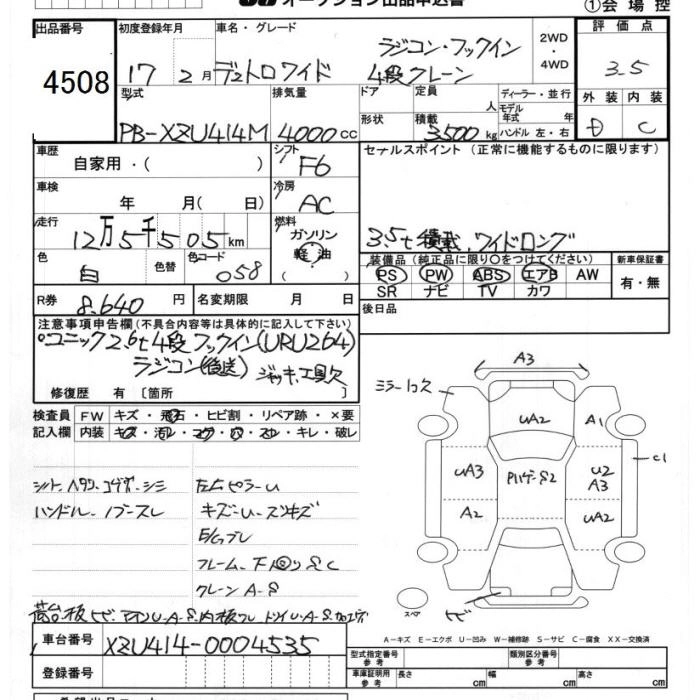 オークション出品申込書
①会場控
出品番号
4508
初度登録年月
17 2月
車名・グレード
デュトロワイド
ラジコン・フックイン
4段クレーン
2WD
・
4WD
評価点
3.5
外装 内装
D C
型式
PB-XZU414M
排気量
4000cc
ドア
形状
定員
人
積載
3500kg
ディーラー・並行
モデル
年式 年
ハンドル 左・右
車歴
自家用・( )
シフト
F6
車検
年 月( 日)
冷房
AC
走行
12万5千505km
燃料
ガソリン
軽油
色
白
色替
色コード
058
R券
8.640円
名変期限 月 日
セールスポイント(正常に機能するものに限ります)
3.5t積載.ワイドロング
装備品(純正品に限り○をつけてください)
PS PW ABS エアB AW
SR ナビ TV カワ
新車保証書
有・無
後日品
注意事項申告欄(不具合内容等は具体的に記入して下さい)
○ユニック2.6t4段フックイン(URU264)
ラジコン(後送) ジャッキ.工具欠
修復歴 有 〔箇所 〕
検査員
記入欄
FW キズ・飛石・ヒビ割・リペア跡・×要
内装 キズ・汚レ・コゲ・穴・スレ・キレ・破レ
シート.ヘタリ.コゲ穴.シミ
ハンドル.ノブースレ
左右ピラーU
キズ-U-スリキズ
フレーム.下回りSC
クレーンA-S
車台番号
XZU414-0004535
登録番号
A3
ミラー1ヶ欠
UA2
A1
C1
UA3
U2
A3
A2
UA2
スペア
ヒビ
A-キズ E-エクボ U-凹み W-補修跡 S-サビ C-腐食 XX-交換済
型式指定番号
参考
類別区分番号
参考
車庫証明用
参考
長さ cm 幅 cm 高さ cm